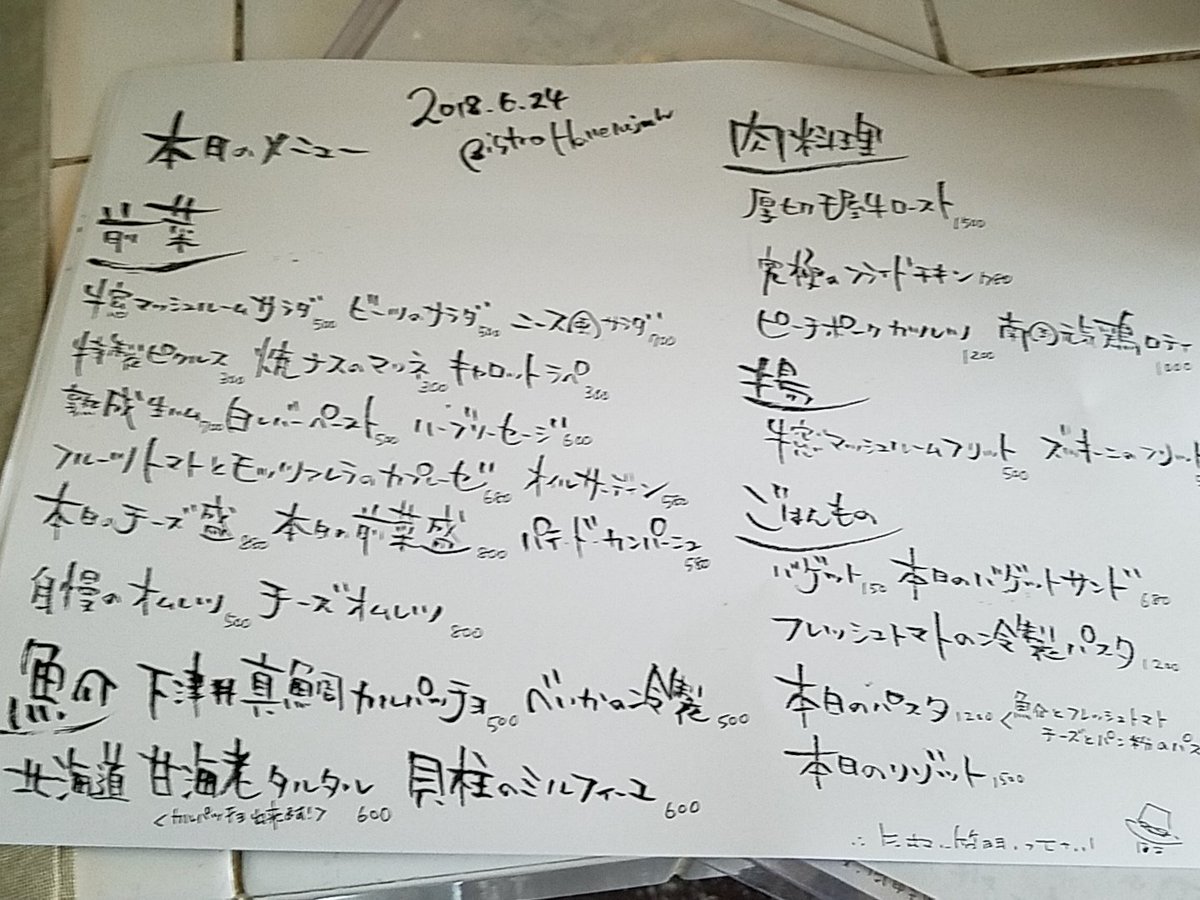 2018.6.24
本日のメニュー
前菜
牛窓マッシュルームサラダ500 ビーツのサラダ500 ニース風サラダ700
特製ピクルス300 焼ナスのマリネ300 キャロットラペ300
熟成生ハム700 白レバーペースト500 ハーブソーセージ600
フルーツトマトとモッツァレラのカプレーゼ680 オイルサーディン580
本日のチーズ盛880 本日の前菜盛800 パテ・ド・カンパーニュ580
自慢のオムレツ500 チーズオムレツ800
魚介
下津井真鯛カルパッチョ500 べいかの冷製500
北海道 甘海老タルタル600 貝柱のミルフィーユ600
<カルパッチョ出来ます!>
肉料理
厚切 牛ロースト1500
究極のフライドチキン780
ピーチポークカツレツ1200 南国元気鶏ロティ1000
揚
牛窓マッシュルームフリット500 ズッキーニのフリット
ごはんもの
バゲット150 本日のバゲットサンド680
フレッシュトマトの冷製パスタ1200
本日のパスタ1200<魚介とフレッシュトマト
チーズとパン粉のパス
本日のリゾット1500